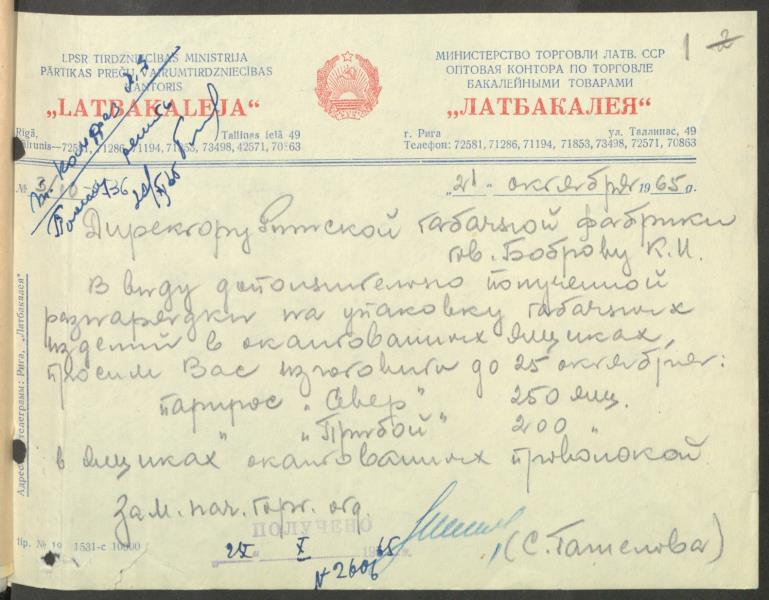 1 2
LPSR TIRDZNIECĪBAS MINISTRIJA
PĀRTIKAS PREČU VAIRUMTIRDZNIECĪBAS
KANTORIS
„LATBAKALEJA“
Rīgā, Tallinas ielā 49
Tālrunis—72581, 71286, 71194, 71853, 73498, 42571, 70863
МИНИСТЕРСТВО ТОРГОВЛИ ЛАТВ. ССР
ОПТОВАЯ КОНТОРА ПО ТОРГОВЛЕ
БАКАЛЕЙНЫМИ ТОВАРАМИ
„ЛАТБАКАЛЕЯ“
г. Рига ул. Таллинас, 49
Телефон: 72581, 71286, 71194, 71853, 73498, 42571, 70863
№ 3-10-736
„21“ октября 1965 г.
Директору Рижской табачной фабрики
тов. Боброву К.И.
В виду дополнительно полученной
разнарядки на упаковку табачных
изделий в окантованных ящиках,
просим Вас изготовить до 25 октября:
папирос „Север“ 250 ящ.
„ „Прибой“ 200 „
в ящиках окантованных проволокой.
Зам. нач. торг. отд.
ПОЛУЧЕНО
X 1965
N 2606
Адрес для телеграмм: Рига, „Латбакалея“
tip. № 19 1531-c 10000